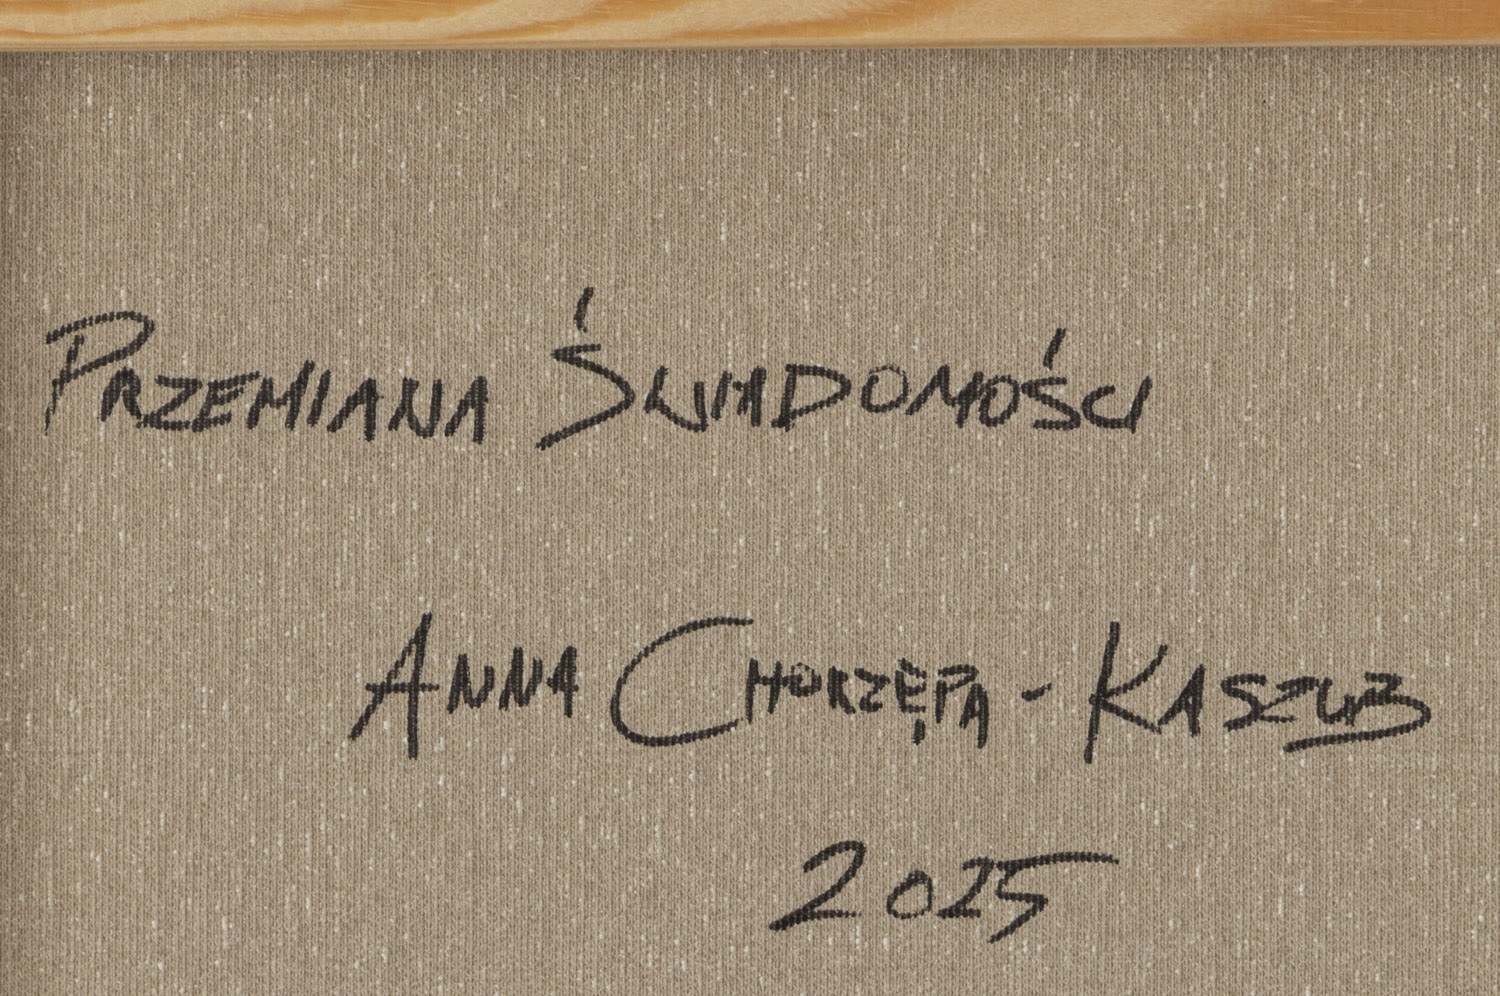 Przemiana Świadomości
Anna Chorzępa - Kaszub
2025